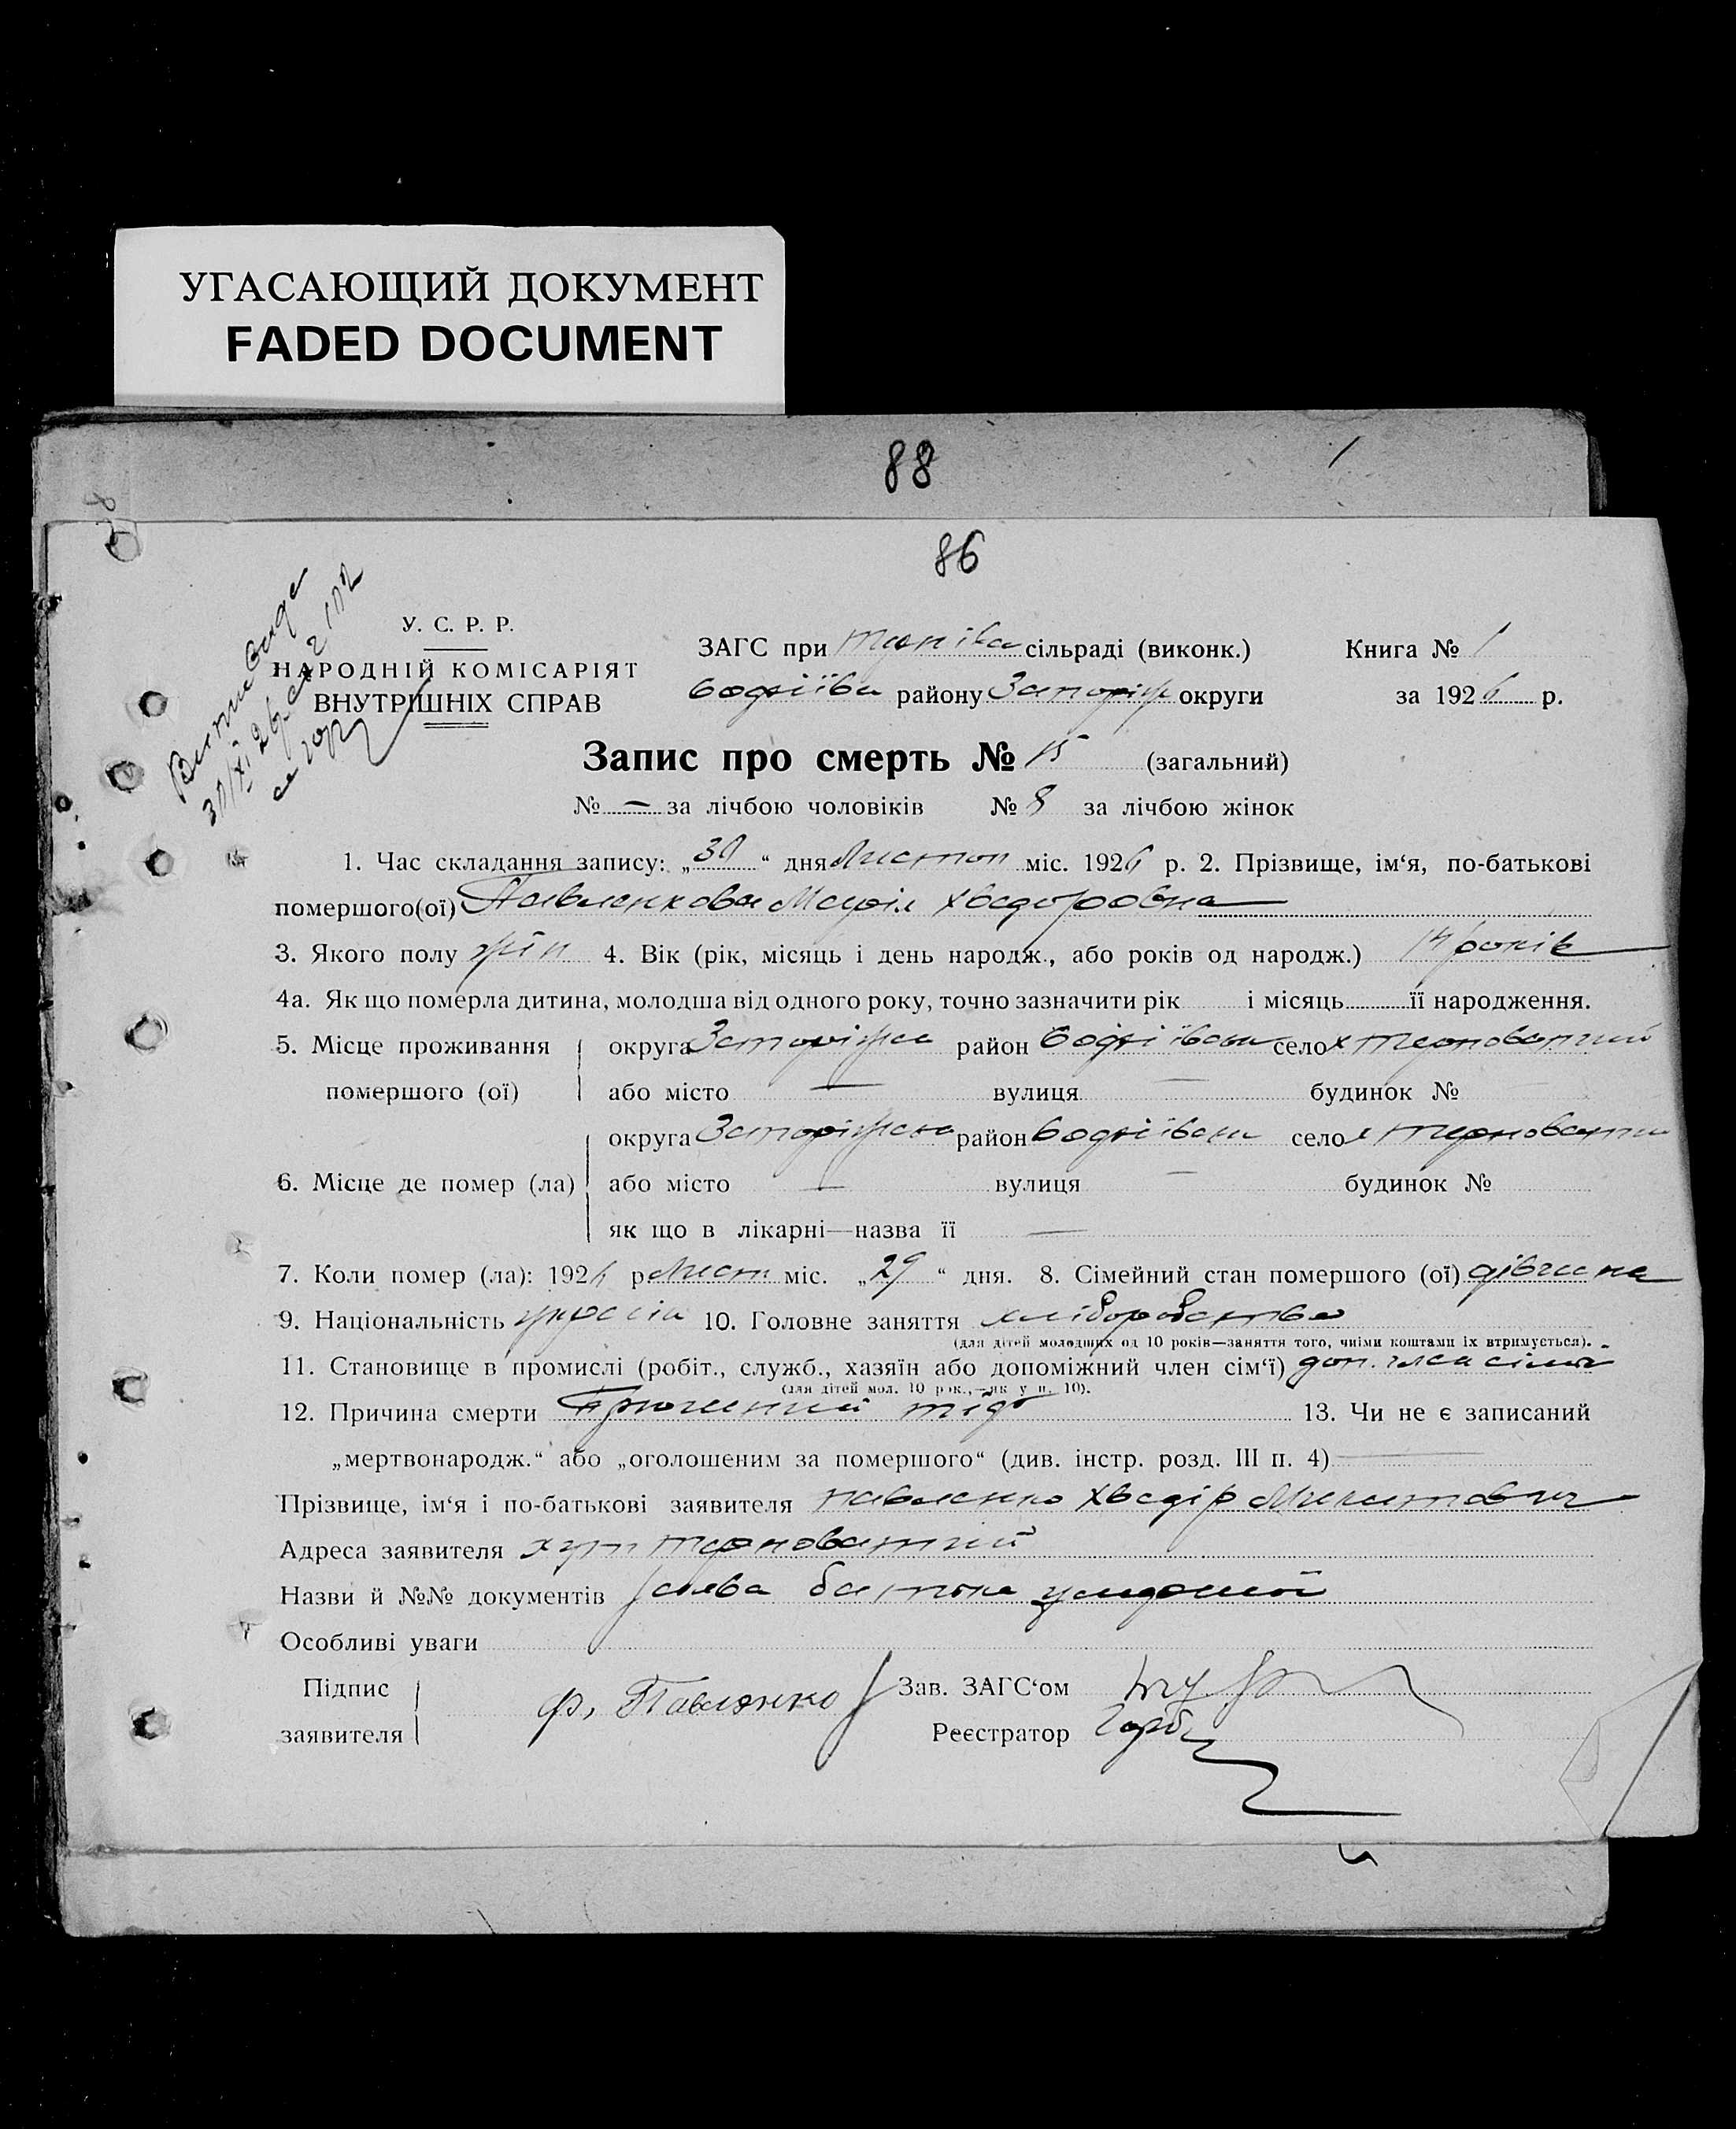 УГАСАЮЩИЙ ДОКУМЕНТ
FADED DOCUMENT
88
86
У. С. Р. Р.
НАРОДНІЙ КОМІСАРІЯТ
ВНУТРІШНІХ СПРАВ
ЗАГС при сільраді (виконк.)
Книга № 1
району Запоріж округи
за 1926 р.
Запис про смерть № 15 (загальний)
№ — за лічбою чоловіків № 8 за лічбою жінок
1. Час складання запису: „30“ дня Листоп міс. 1926 р. 2. Прізвище, ім‘я, по-батькові
помершого(ої) Павленкова Марія Хведоровна
3. Якого полу жін 4. Вік (рік, місяць і день народж., або років од народж.) 14 років
4а. Як що померла дитина, молодша від одного року, точно зазначити рік і місяць її народження.
5. Місце проживання
помершого (ої)
округа Запоріжжа район село х Терноватий
або місто — вулиця — будинок №
6. Місце де помер (ла)
округа Запоріжжа район село х Терновати
або місто — вулиця — будинок №
як що в лікарні—назва її —
7. Коли помер (ла): 1926 р Лист міс. „29“ дня. 8. Сімейний стан помершого (ої) дівчина
9. Національність україн 10. Головне заняття хліборобство
(для дітей молодших од 10 років—заняття того, чиїми коштами їх втримується).
11. Становище в промислі (робіт., служб., хазяїн або допоміжний член сім‘ї) доп. член сімї
(для дітей мол. 10 рок.,—як у п. 10).
12. Причина смерти тіф 13. Чи не є записаний
„мертвонародж.“ або „оголошеним за помершого“ (див. інстр. розд. III п. 4) —
Прізвище, ім‘я і по-батькові заявителя Павленко Хведір Микитович
Адреса заявителя хут Терноватий
Назви й №№ документів заява батька умершої
Особливі уваги
Підпис
заявителя
Ф. Павленко
Зав. ЗАГС‘ом
Реєстратор